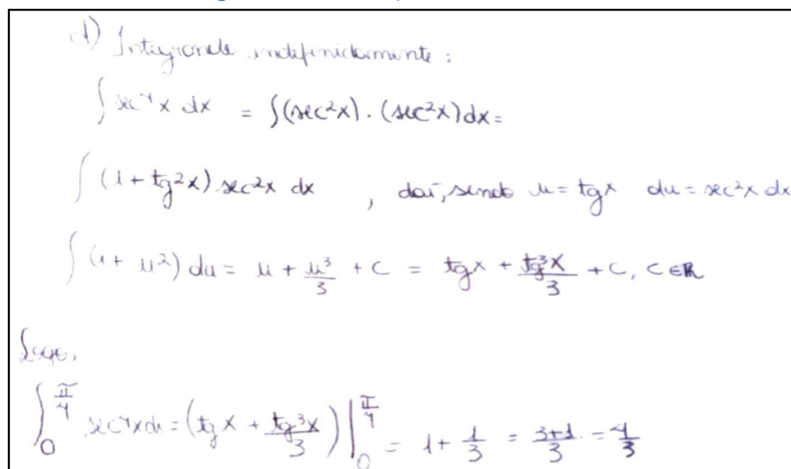 d) Integrando indefinidamente:
∫ sec⁴x dx = ∫(sec²x).(sec²x)dx=
∫ (1+tg²x).sec²x dx , daí, sendo u=tgx du=sec²x dx
∫ (1+ u²) du = u + u³/3 + C = tgx + tg³x/3 + C, C∈R
Logo,
∫₀^{π/4} sec⁴x dx = (tgx + tg³x/3)|₀^{π/4} = 1+ 1/3 = 3+1/3 = 4/3